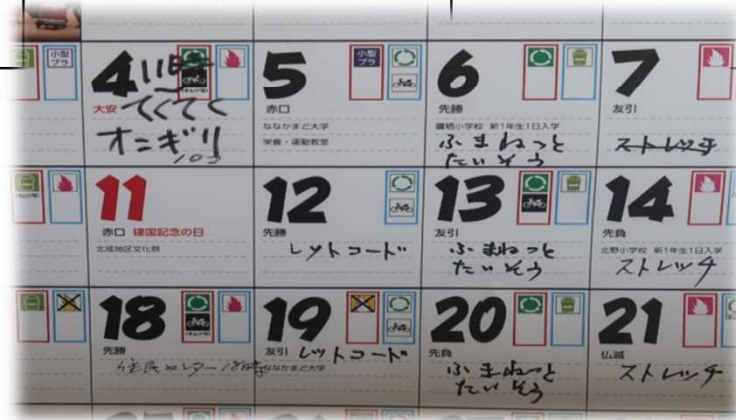 小型プラ
4
11時
大安
てくてく
オニギリ
5
小型プラ
赤口
ななかまど大学
栄養・運動教室
6
先勝
鷹栖小学校 新1年生1日入学
ふまねっと
たいそう
7
友引
ストレッチ
11
赤口 建国記念の日
北成地区文化祭
12
先勝
レットコード
13
友引
ふまねっと
たいそう
14
先負
北野小学校 新1年生1日入学
ストレッチ
18
先勝
住民センター 18時
19
友引
レットコード
ななかまど大学
20
先負
ふまねっと
たいそう
21
仏滅
ストレッチ